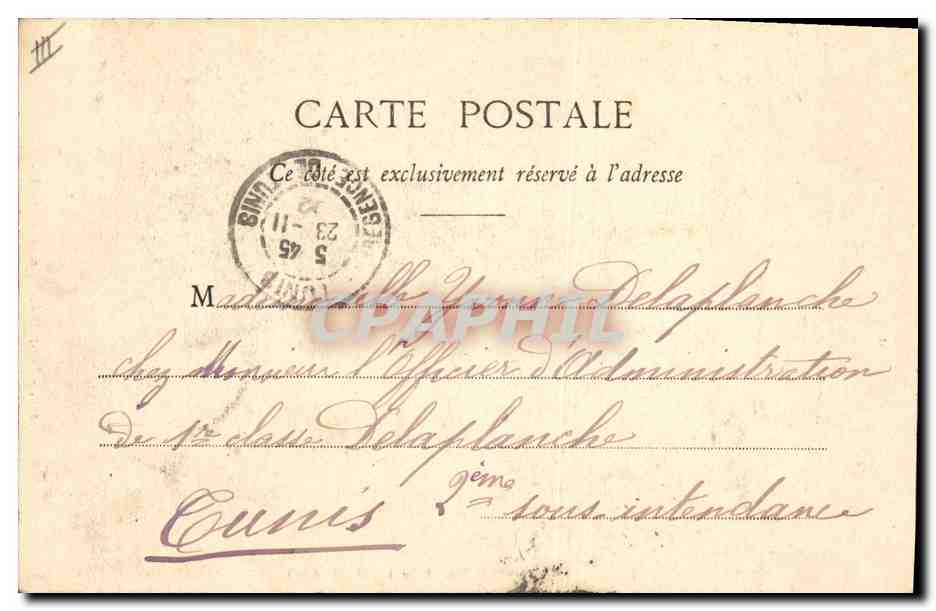 III
CARTE POSTALE
Ce côté est exclusivement réservé à l'adresse
REGENCE DE TUNIS
5 45
23 -11
02
TUNIS
Mademoiselle Yvonne Delaplanche
CPAPHIL
chez Monsieur l'Officier d'Administration
de 1re classe Delaplanche
2ème sous intendance
Tunis